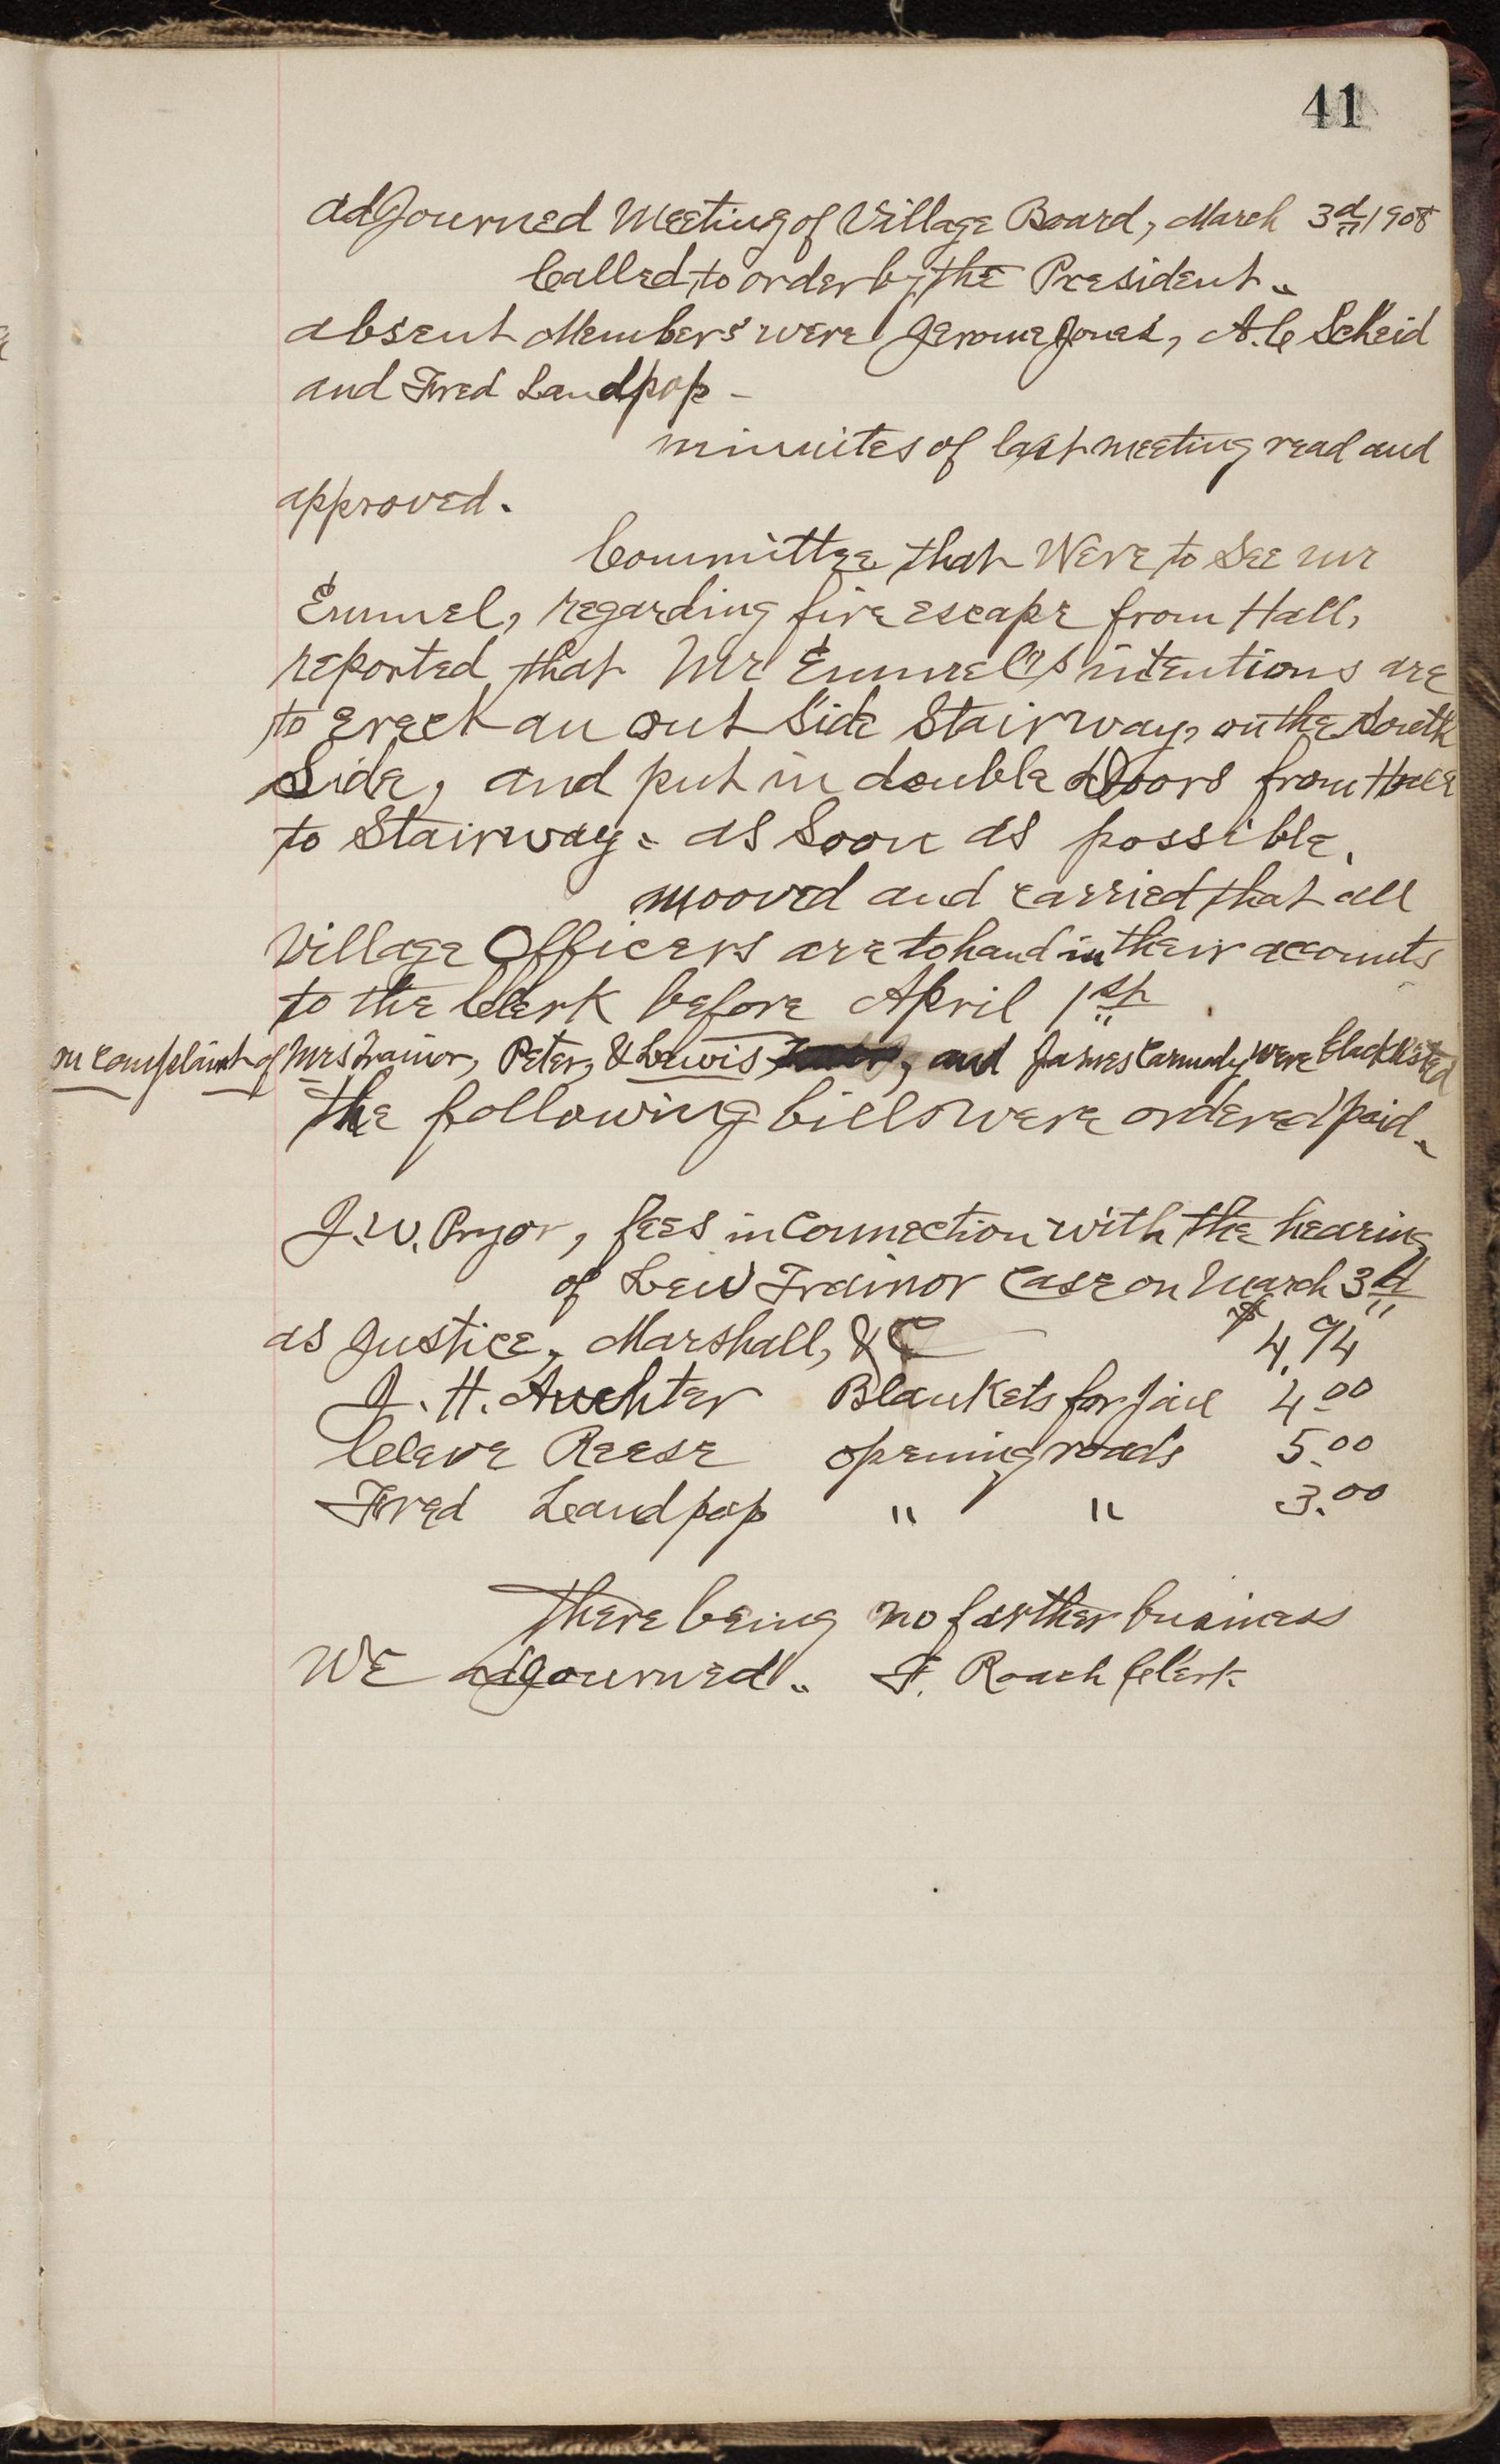 41
adjourned Meeting of Village Board, March 3d 1908
Called to order by the President.
absent Members were Jerome Jones, A.C Scheid
and Fred Landpap -
minuites of last meeting read and
approved.
Committee that Were to See mr
Emmel, regarding fire escape from Hall,
reported that Mr Emmel's intentions are
to erect an out Side Stairway, on the South
Side, and put in double doors from Hall
to Stairway - as Soon as possible.
mooved and carried that all
Village Officers are to hand in their accounts
to the Clerk before April 1st
on complaint of Mrs Trainor, Peter, & Lewis and James Carmody were blacklisted
The following bills were ordered paid.
J.W. Pryor, fees in Connection with the hearing
of Lew Trainor Case on March 3d
as Justice, Marshall, &C $4.94
J. H. Auchter Blankets for Jail 4.00
Cleave Reese opening roads 5.00
Fred Landpap " " 3.00
There being no farther business
WE adjourned. F. Roach Clerk.